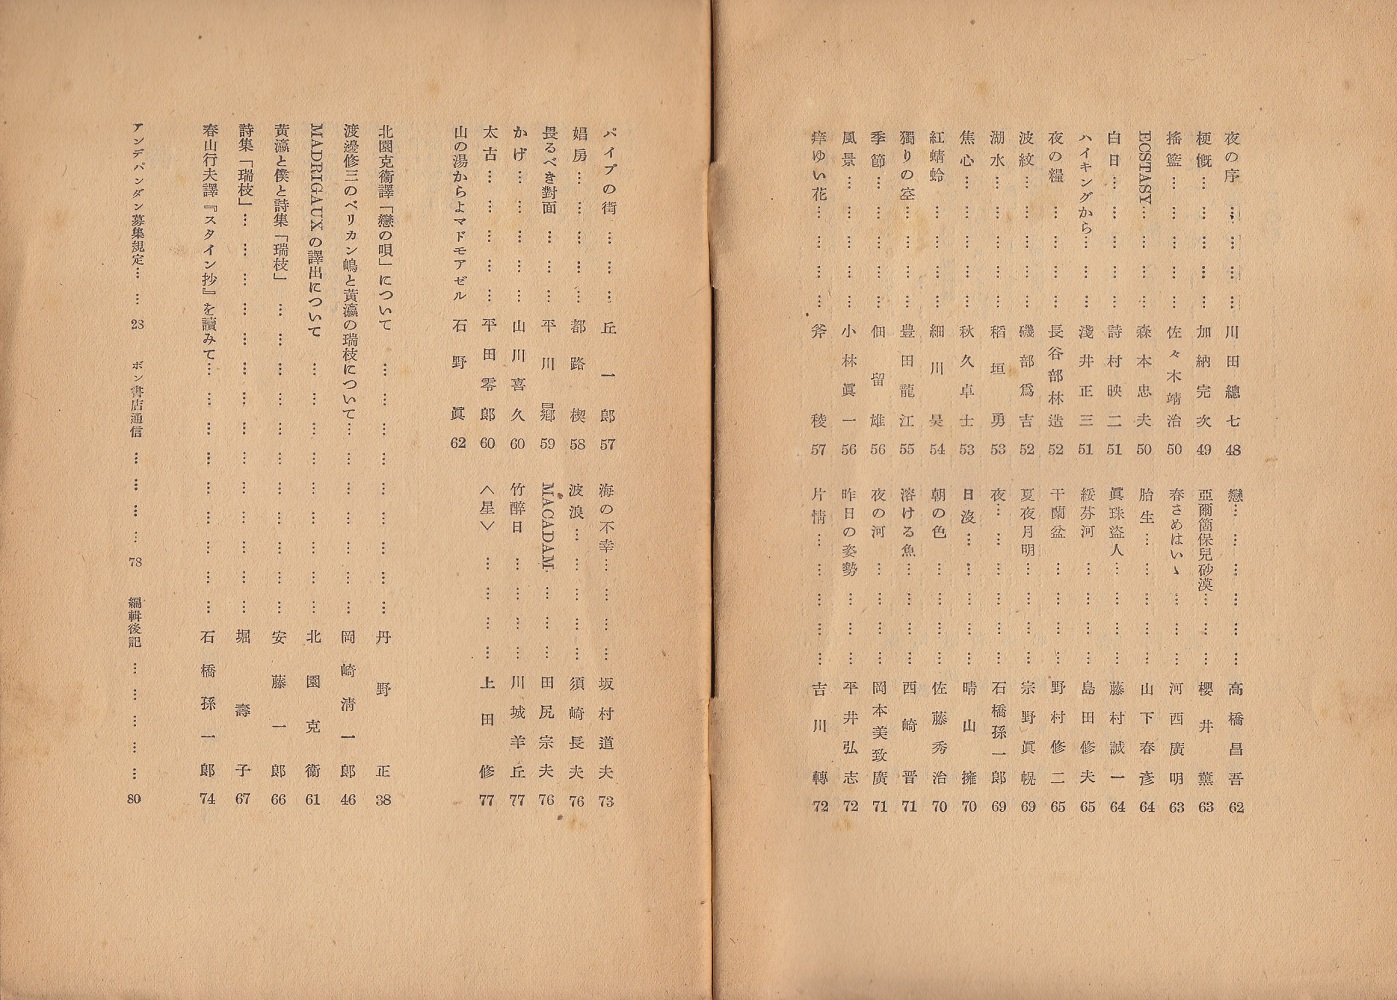 夜の序 … … … … 川田總七 48
梗慨 … … … … … 加納完次 49
搖籃 … … … … … 佐々木靖治 50
ECSTASY … … … … 森本忠夫 50
白日 … … … … … 詩村映二 51
ハイキングから … … … 淺井正三 51
夜の糧 … … … … 長谷部林造 52
波紋 … … … … … 磯部爲吉 52
湖水 … … … … … 稻垣勇 53
焦心 … … … … … 秋久卓士 53
紅蜻蛉 … … … … 細川昊 54
獨りの空 … … … … 豊田龍江 55
季節 … … … … … 佃留雄 56
風景 … … … … … 小林眞一 56
痒ゆい花 … … … … 斧稜 57
戀 … … … … … … 高橋昌吾 62
亞爾箇保兒砂漠 … … … 櫻井葉 63
春さめはいゝ … … … … 河西廣明 63
胎生 … … … … … 山下春彥 64
眞珠盜人 … … … … 藤村誠一 64
綏芬河 … … … … 島田修夫 65
干蘭盆 … … … … 野村修二 65
夏夜月明 … … … … 宗野眞幌 69
夜 … … … … … … 石橋孫一郎 69
日沒 … … … … … 晴山擁 70
朝の色 … … … … 佐藤秀治 70
溶ける魚 … … … … 西崎晋 71
夜の河 … … … … 岡本美致廣 71
昨日の姿勢 … … … … 平井弘志 72
片情 … … … … … 吉川轉 72
パイプの街 … … … 丘一郎 57
娼房 … … … … … 都路楔 58
畏るべき對面 … … … 平川㠀鄕 59
かげ … … … … … 山川喜久 60
太古 … … … … … 平田零郎 60
山の湯からよマドモアゼル 石野眞 62
海の不幸 … … … … 坂村道夫 73
波浪 … … … … … 須崎長夫 76
MACADAM … … … 田尻宗夫 76
竹醉日 … … … … 川城羊丘 77
＜星＞ … … … … 上田修 77
北園克衞譯「戀の唄」について … … … … … … … … … 丹野正 38
渡邊修三のペリカン嶋と黃瀛の瑞枝について … … … … … … … 岡崎淸一郎 46
MADRIGAUXの譯出について … … … … … … … … … 北園克衞 61
黃瀛と僕と詩集「瑞枝」 … … … … … … … … … … … 安藤一郎 66
詩集「瑞枝」 … … … … … … … … … … … … … … 堀壽子 67
春山行夫譯『スタイン抄』を讀みて … … … … … … … … … 石橋孫一郎 74
アンデパンダン募集規定 … … 23 ボン書店通信 … … … … 78 編輯後記 … … … … … 80